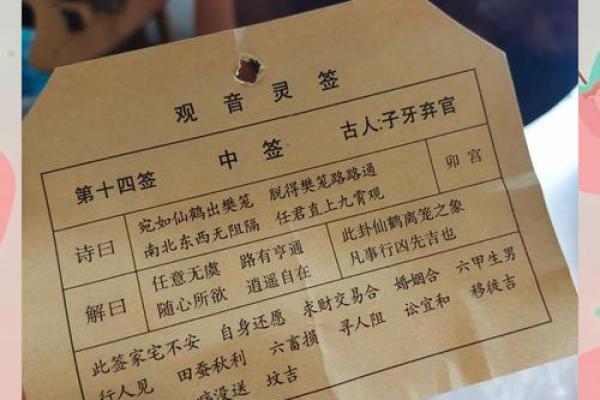 观音灵签
第十四签 中签 古人:子牙弃官
诗曰
宛如仙鹤出樊笼 脱得樊笼路路通
南北东西无阻隔 任君直上九霄观
卯宫
解曰
任意无虞 路有亨通
随心所欲 逍遥自在
此卦仙鹤离笼之象
凡事行凶先吉也
此签家宅不安 自身还愿 求财交易合 婚姻合 六甲生男
行人见 田蚕秋利 六畜损 寻人阻 讼宜和 移徒吉
没送 坟吉